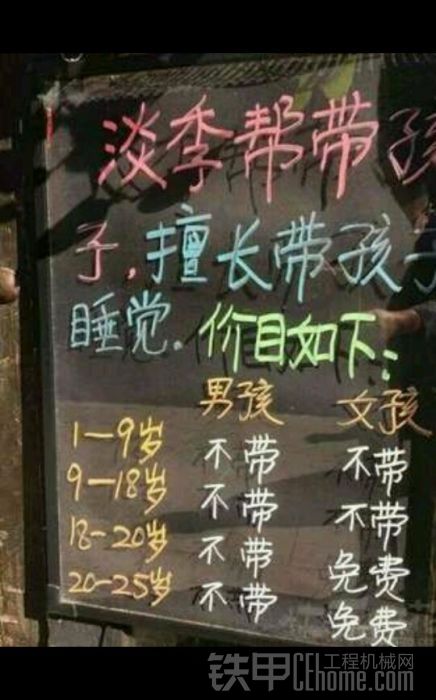 淡季帮带孩
子,擅长带孩子
睡觉.价目如下:
男孩 女孩
1-9岁 不带 不带
9-18岁 不带 不带
18-20岁 不带 免费
20-25岁 不带 免费
铁甲 工程机械网
CEhome.com